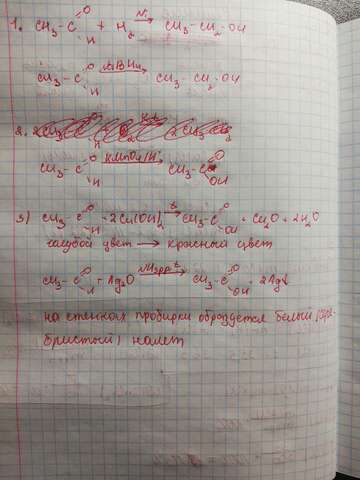 1. CH₃-C(=O)H + H₂ —Ni→ CH₃-CH₂-OH
CH₃-C(=O)H —NaBH₄→ CH₃-CH₂-OH
2.
CH₃-C(=O)H —KMnO₄/H⁺→ CH₃-C(=O)OH
3) CH₃-C(=O)H + 2Cu(OH)₂ —t→ CH₃-C(=O)OH + Cu₂O + 2H₂O
голубой цвет → красный цвет
CH₃-C(=O)H + Ag₂O —NH₃ р-р, t→ CH₃-C(=O)OH + 2Ag↓
на стенках пробирки образуется белый (сере-
бристый) налет